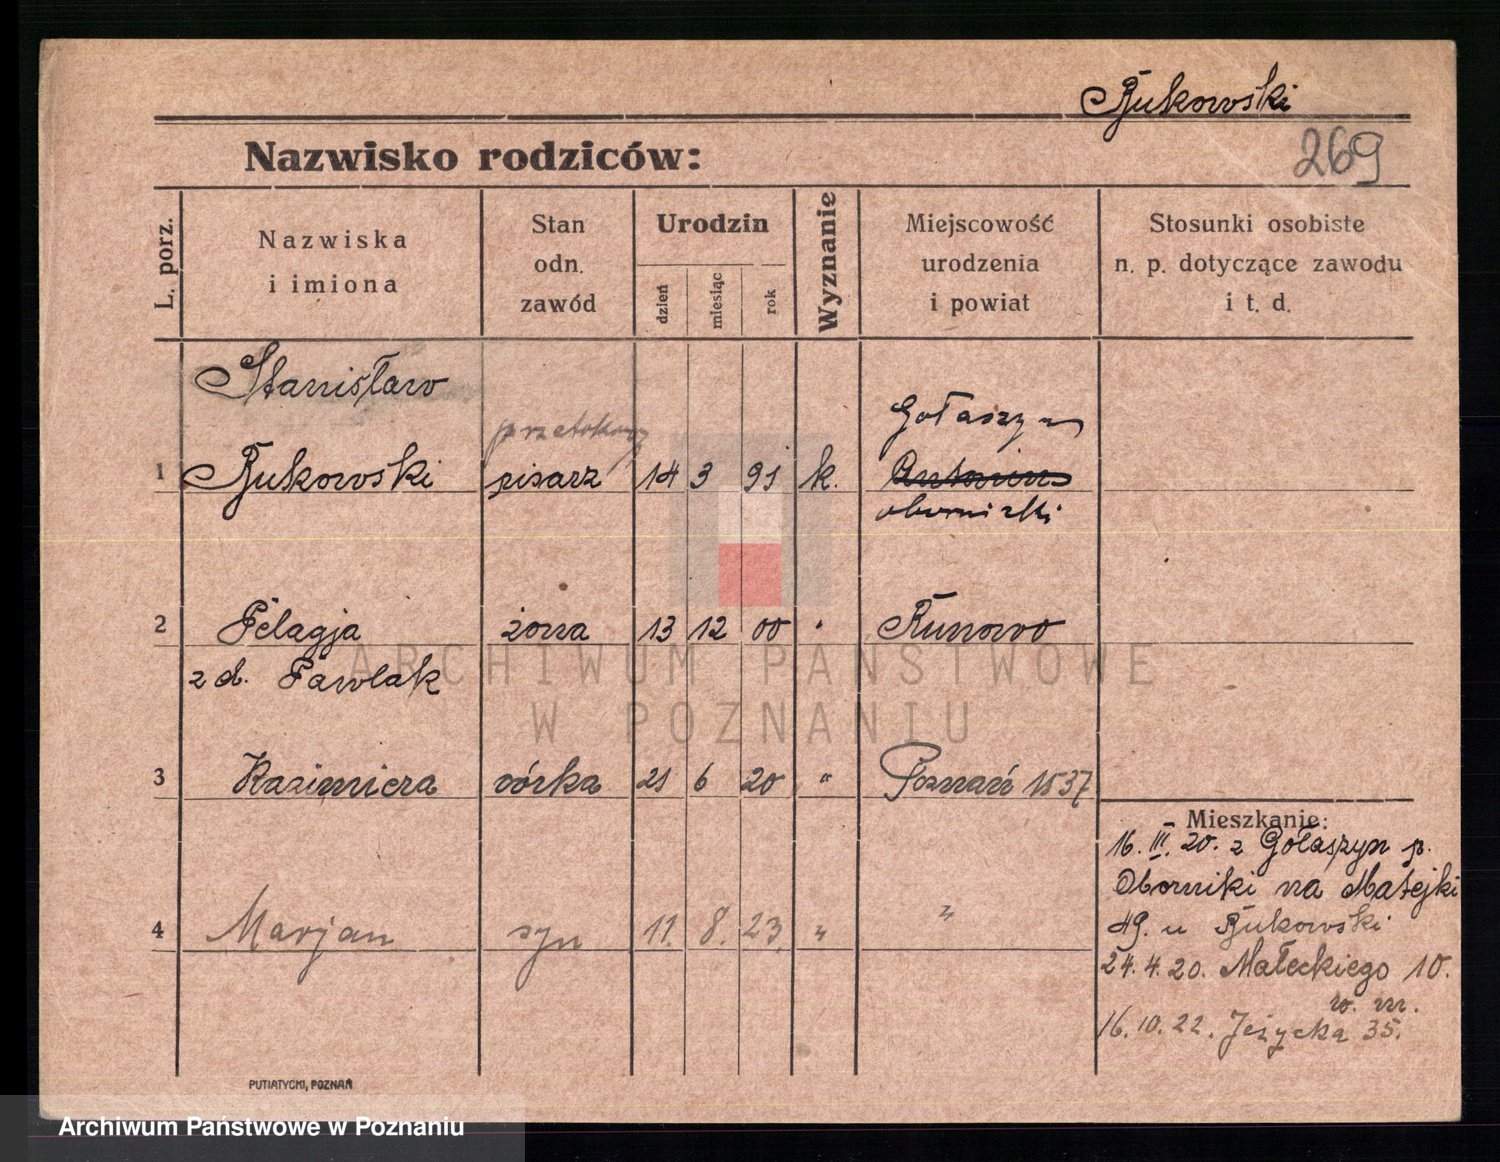 Bukowski
269
Nazwisko rodziców:
L. porz.
Nazwiska
i imiona
Stan
odn.
zawód
Urodzin
dzień
miesiąc
rok
Wyznanie
Miejscowość
urodzenia
i powiat
Stosunki osobiste
n. p. dotyczące zawodu
i t. d.
Stanisław
1 Bukowski pisarz 14 3 91 k. Gołaszyn
przetokowy
obornicki
2 Pelagja żona 13 12 00 " Runowo
z d. Pawlak
3 Kazimiera córka 21 6 20 " Poznań 1537
4 Marjan syn 11. 8. 23 " "
Mieszkanie:
16. III. 20. z Gołaszyn p.
Oborniki na Matejki
49. u Bukowski
24. 4. 20. Małeckiego 10.
w. m.
16. 10. 22. Jeżycka 35.
PUTIATYCKI, POZNAŃ
ARCHIWUM PAŃSTWOWE
W POZNANIU
Archiwum Państwowe w Poznaniu